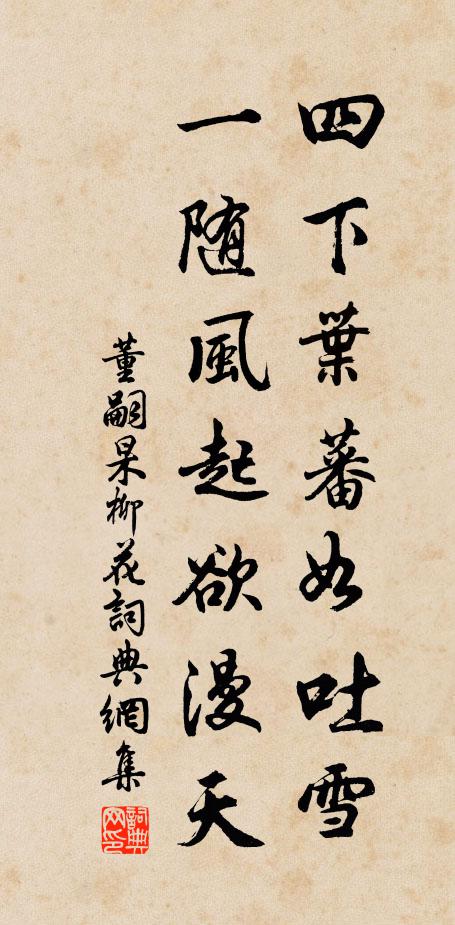 四下葉蕃如吐雪
一随風起欲漫天
董嗣杲柳花詞典網集
詞典網印